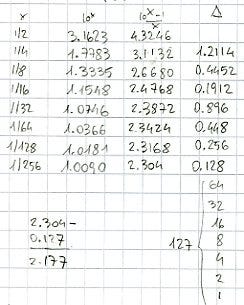 x 10^x 10^x-1/x Δ
1/2 3.1623 4.3246
1/4 1.7783 3.1132 1.2114
1/8 1.3335 2.6680 0.4452
1/16 1.1548 2.4768 0.1912
1/32 1.0746 2.3872 0.896
1/64 1.0366 2.3424 0.448
1/128 1.0181 2.3168 0.256
1/256 1.0090 2.304 0.128
64
32
2.304- 16
0.127 127 8
2.177 4
2
1